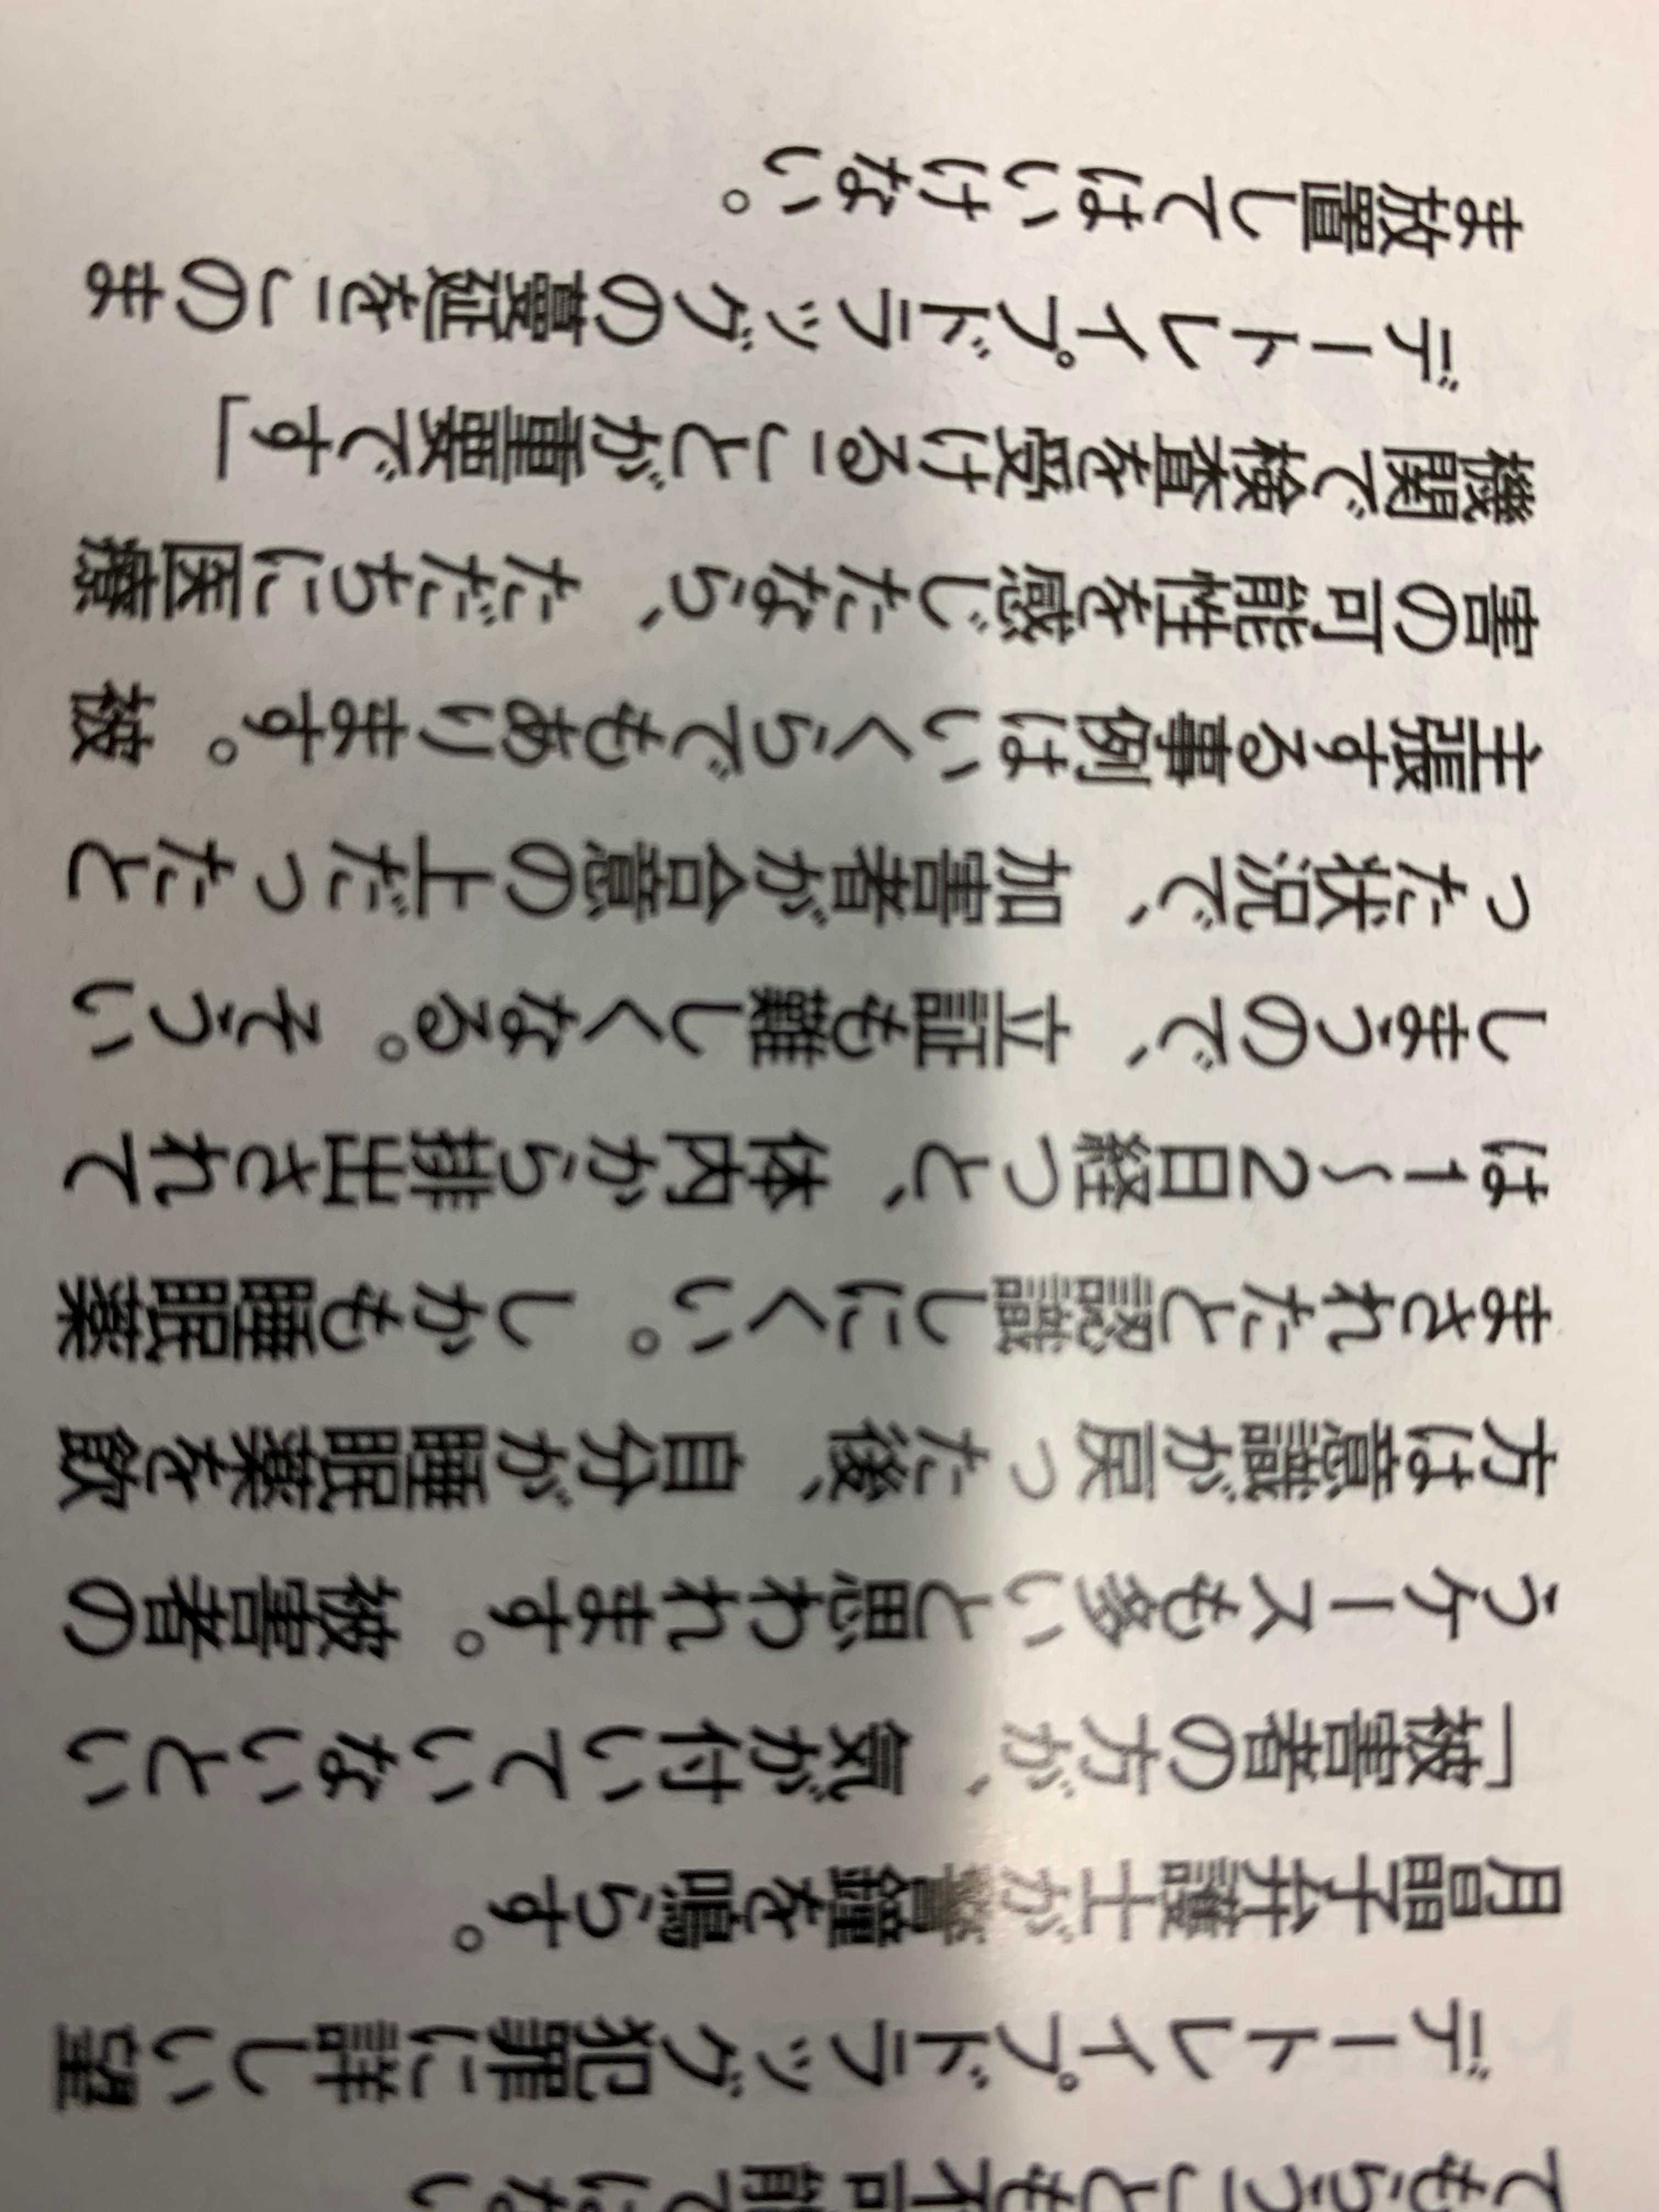 てもらうことも不可能ではない
デートレイプドラッグ犯罪に詳しい望
月晶子弁護士が警鐘を鳴らす。
「被害者の方が、気が付いていないとい
うケースも多いと思われます。被害者の
方は意識が戻った後、自分が睡眠薬を飲
まされたと認識しにくい。しかも睡眠薬
は1~2日経つと、体内から排出されて
しまうので、立証も難しくなる。そうい
った状況で、加害者が合意の上だったと
主張する事例はいくらでもあります。被
害の可能性を感じたなら、ただちに医療
機関で検査を受けることが重要です」
デートレイプドラッグの蔓延をこのま
ま放置してはいけない。